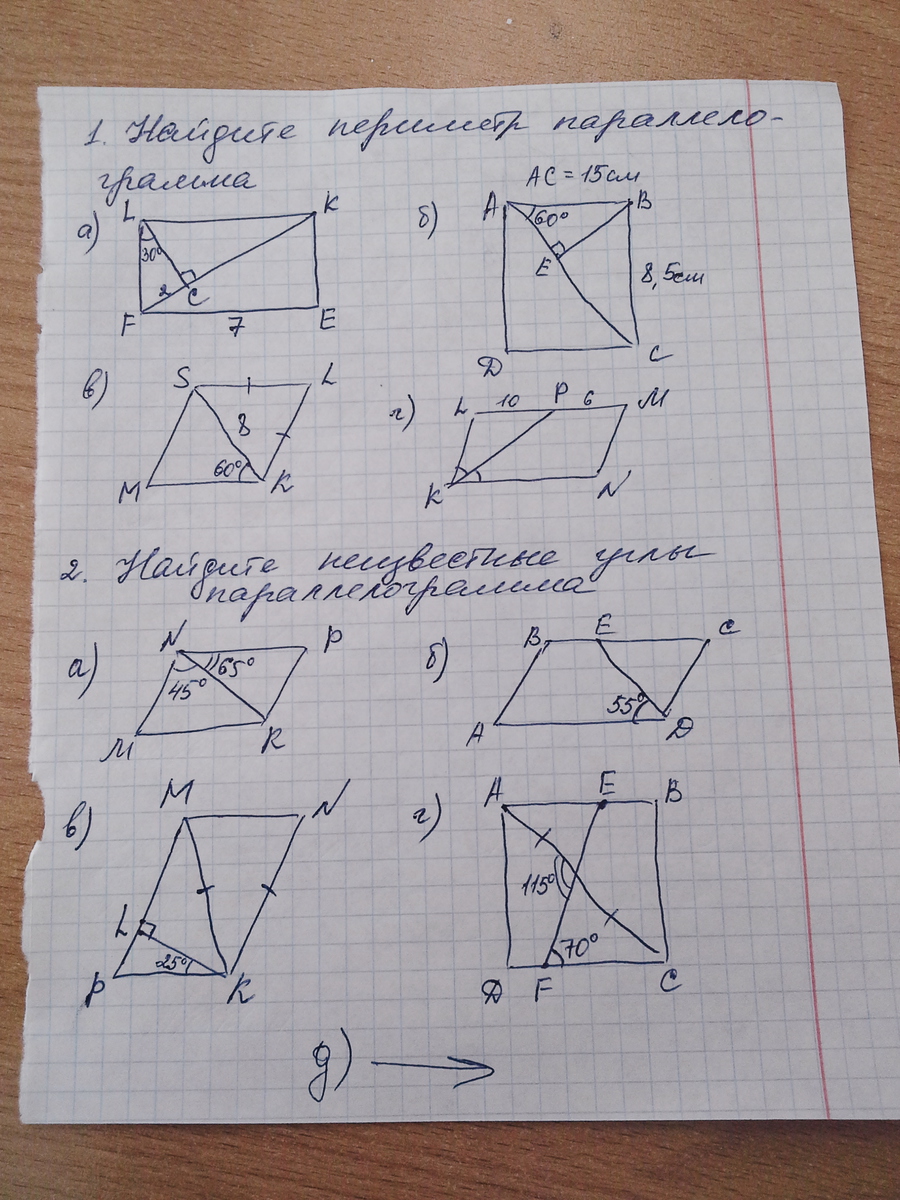 1. Найдите периметр параллело-
грамма
AC = 15 см
а) L K 30° 2 C F 7 E
б) A 60° B E 8,5 см D C
в) S L 8 60° M K
г) L 10 P 6 M K N
2. Найдите неизвестные углы
параллелограмма
а) N P 65° 45° M K
б) B E C 55° A D
в) M N L 25° P K
г) A E B 115° 70° D F C
д) →